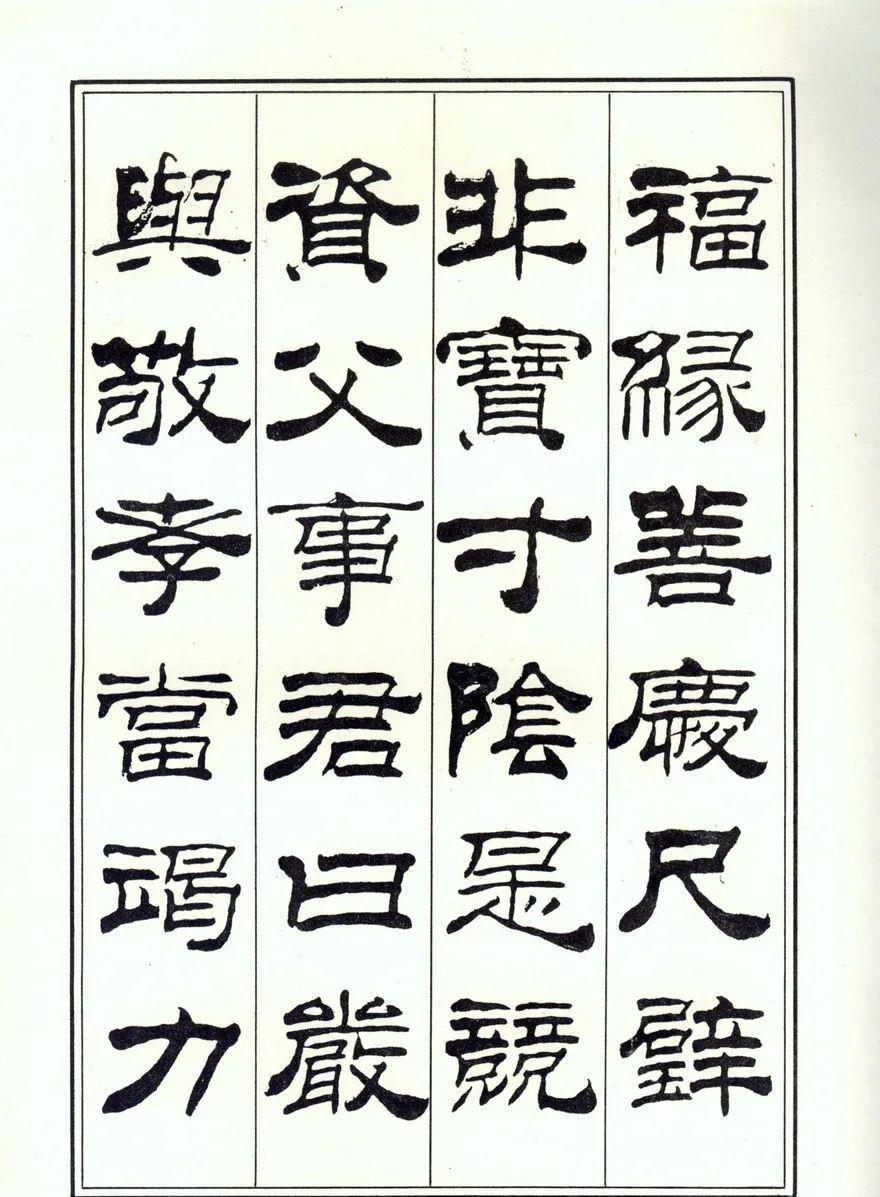 福緣善慶尺璧
非寶寸陰是競
資父事君曰嚴
與敬孝當竭力